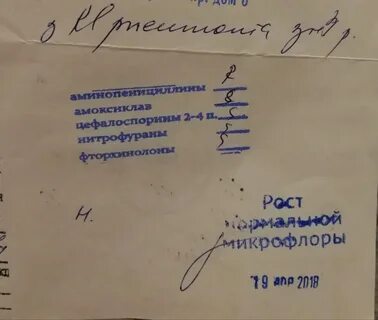 Kl pneumonia
аминопенициллины R
амоксиклав
цефалоспорины 2-4 п. S
нитрофураны S
фторхинолоны S
н.
Рост
нормальной
микрофлоры
19 АПР 2018